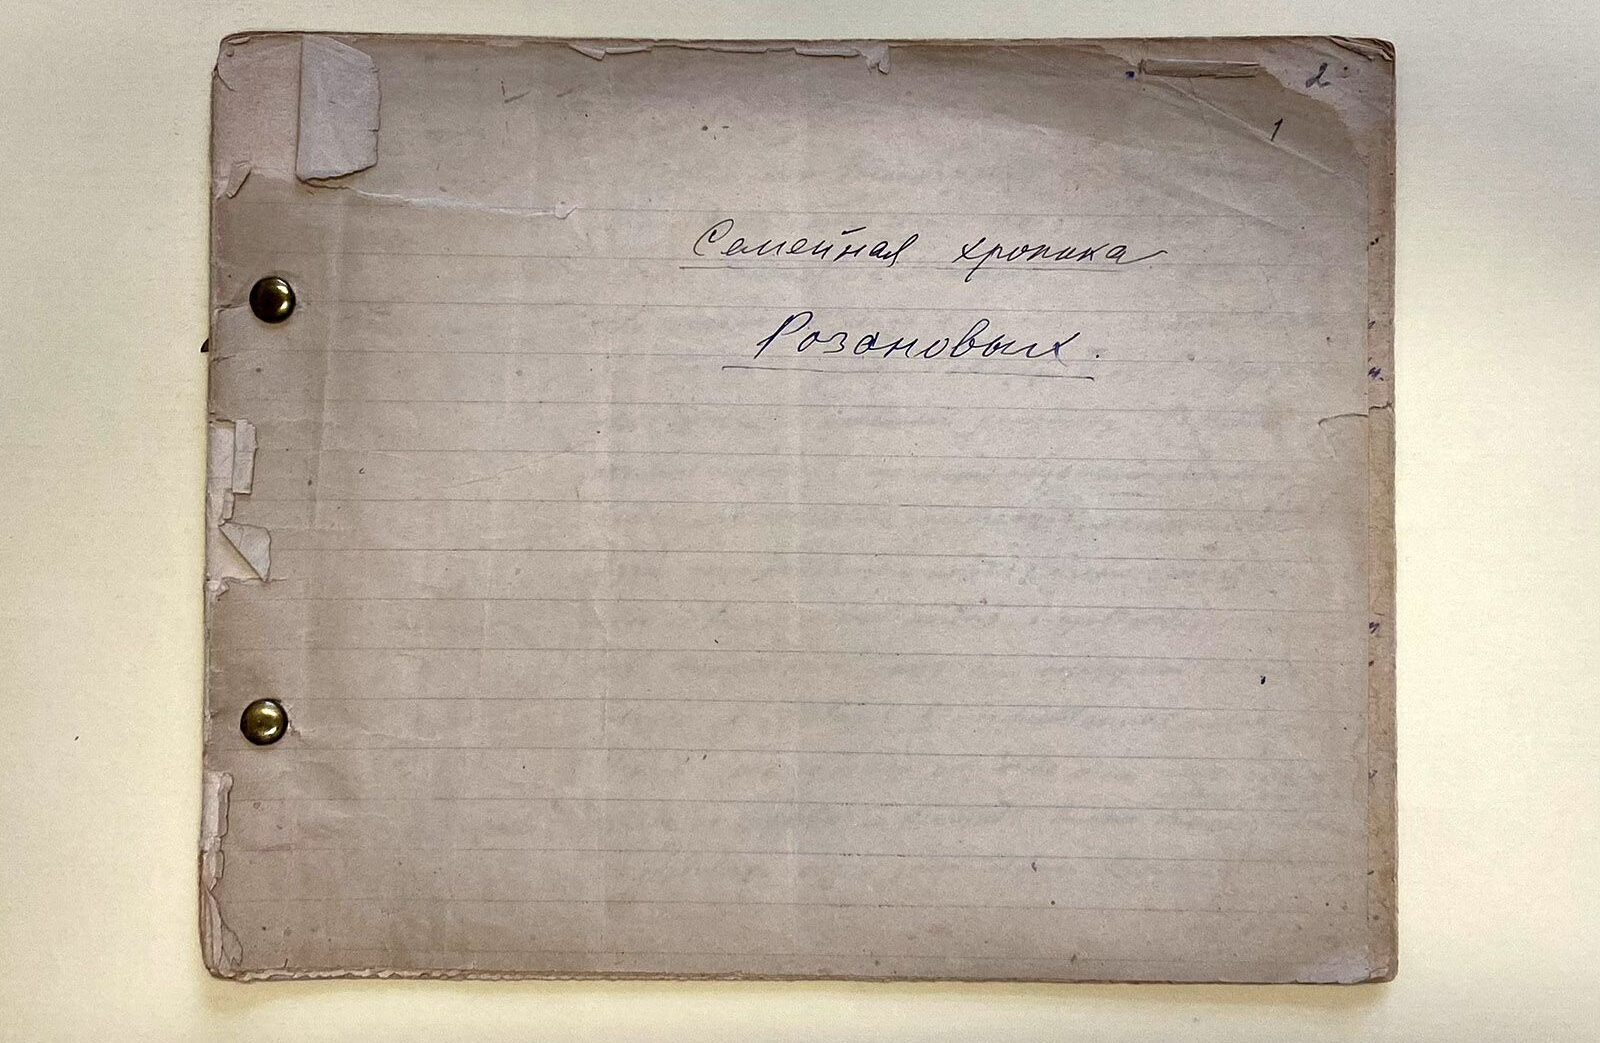 2
1
Семейная хроника
Розановых.